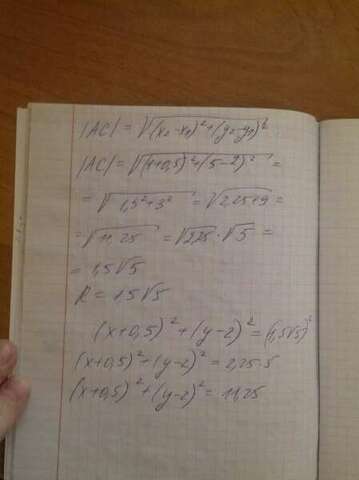 |AC| = √(x₂-x₁)²+(y₂-y₁)²
|AC| = √(1+0,5)²+(5-2)² =
= √1,5²+3² = √2,25+9 =
= √11,25 = √2,25 · √5 =
= 1,5√5
R = 1,5√5
(x+0,5)²+(y-2)² = (1,5√5)²
(x+0,5)²+(y-2)² = 2,25·5
(x+0,5)²+(y-2)² = 11,25